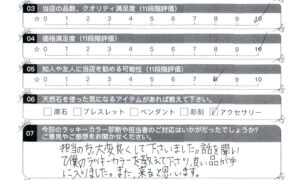 03 当店の品数、クオリティ満足度（11段階評価）
0 1 2 3 4 5 6 7 8 9 10
04 価格満足度（11段階評価）
0 1 2 3 4 5 6 7 8 9 10
05 知人や友人に当店を勧める可能性（11段階評価）
0 1 2 3 4 5 6 7 8 9 10
06 天然石を使った気になるアイテムがあれば教えて下さい。
□原石 □ブレスレット □ペンダント □彫刻 ☑アクセサリー
07 今回のラッキーカラー診断や担当者のご対応はいかがだったでしょうか？
ご意見やご感想をお聞かせください。
担当の方が大変良くして下さいました。話を聞い
て僕のラッキーカラーを教えて下さり、良い品が手
に入りました。また、来ると思います。